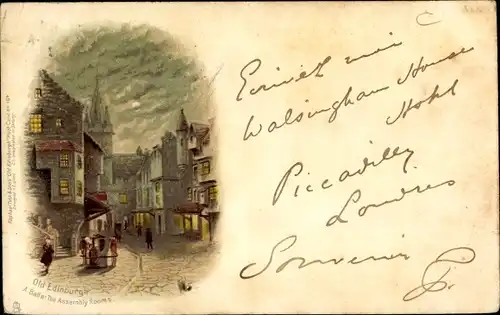 Ecrivez moi
Walsingham House
Hotel
Piccadilly
Londres
Souvenir
Old Edinburgh
A Ball at The Assembly Rooms